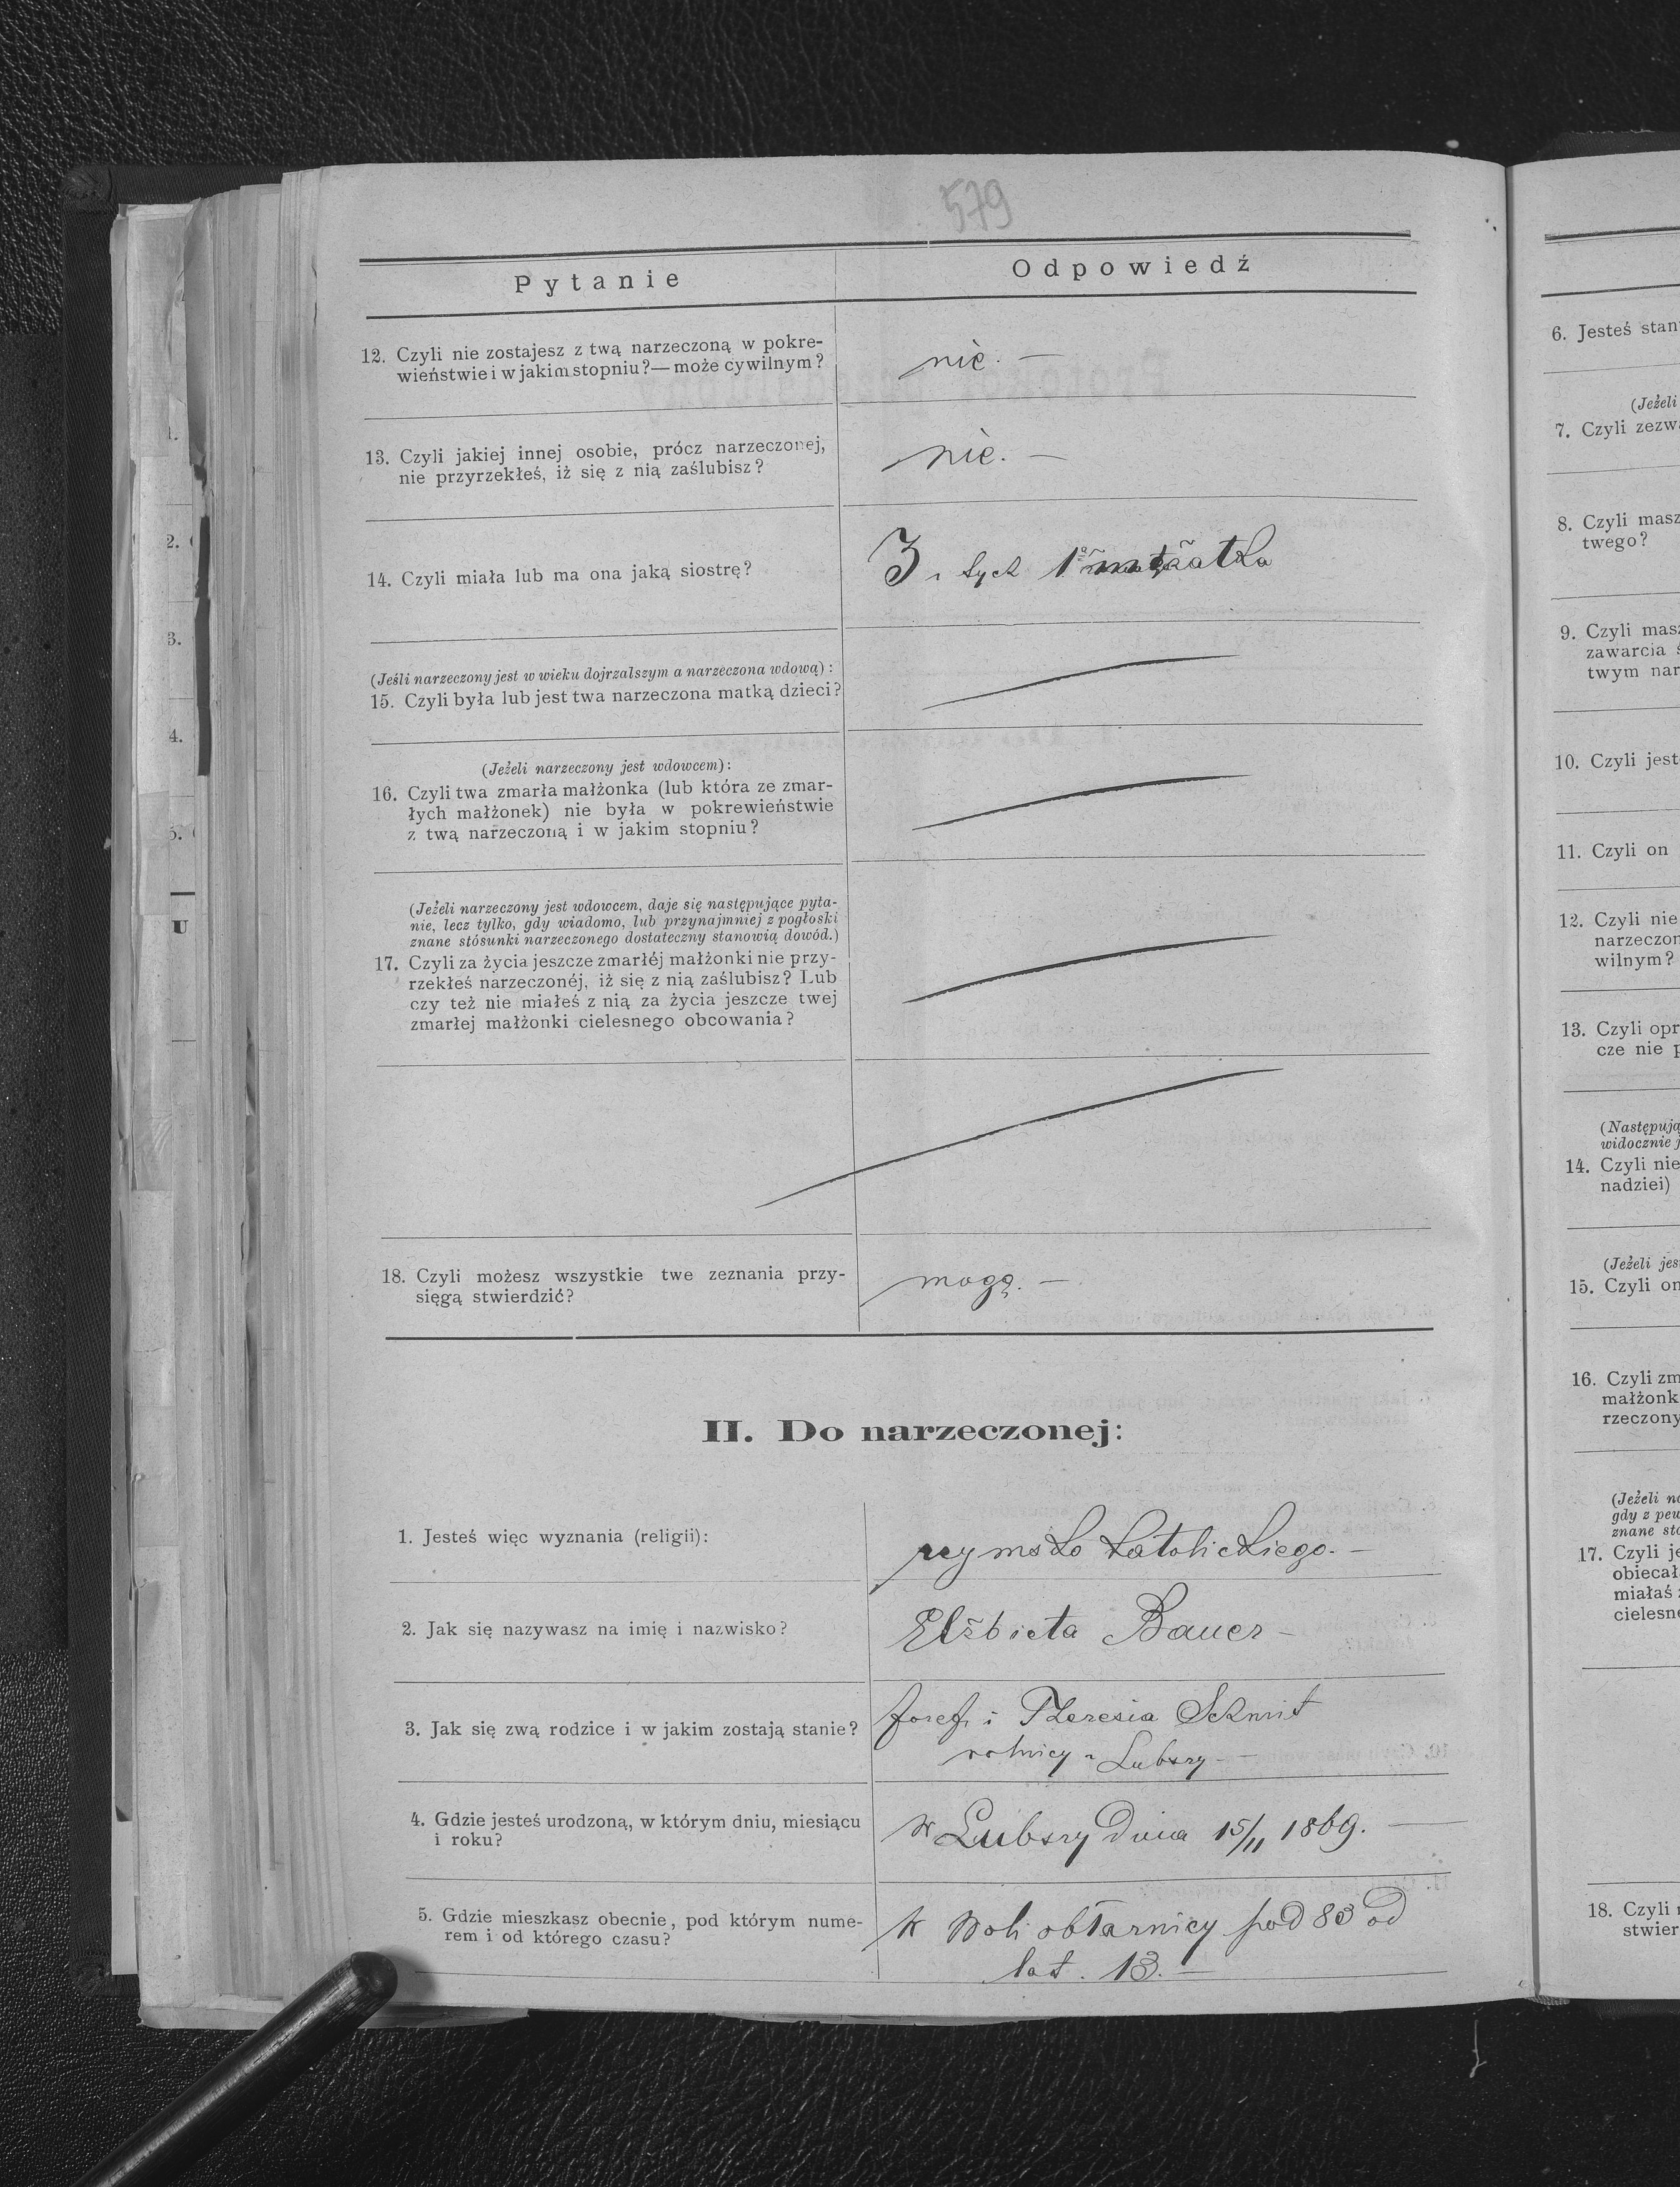 579
Pytanie
Odpowiedź
12. Czyli nie zostajesz z twą narzeczoną w pokre-
wieństwie i w jakim stopniu?— może cywilnym?
nie. —
13. Czyli jakiej innej osobie, prócz narzeczonej,
nie przyrzekłeś, iż się z nią zaślubisz?
nie. —
14. Czyli miała lub ma ona jaką siostrę?
3 z tych 1
(Jeśli narzeczony jest w wieku dojrzalszym a narzeczona wdową):
15. Czyli była lub jest twa narzeczona matką dzieci?
(Jeżeli narzeczony jest wdowcem):
16. Czyli twa zmarła małżonka (lub która ze zmar-
łych małżonek) nie była w pokrewieństwie
z twą narzeczoną i w jakim stopniu?
(Jeżeli narzeczony jest wdowcem, daje się następujące pyta-
nie, lecz tylko, gdy wiadomo, lub przynajmniej z pogłoski
znane stósunki narzeczonego dostateczny stanowią dowód.)
17. Czyli za życia jeszcze zmarłéj małżonki nie przy-
rzekłeś narzeczonéj, iż się z nią zaślubisz? Lub
czy też nie miałeś z nią za życia jeszcze twej
zmarłej małżonki cielesnego obcowania?
18. Czyli możesz wszystkie twe zeznania przy-
sięgą stwierdzić?
mogę. —
II. Do narzeczonej:
1. Jesteś więc wyznania (religii):
rzymsko katolickiego. —
2. Jak się nazywasz na imię i nazwisko?
Elżbieta Bauer —
3. Jak się zwą rodzice i w jakim zostają stanie?
Josef i Theresia Schmit
rolnicy z Lubszy —
4. Gdzie jesteś urodzoną, w którym dniu, miesiącu
i roku?
w Lubszy dnia 15/11 1869. —
5. Gdzie mieszkasz obecnie, pod którym nume-
rem i od którego czasu?
w Woli obłarnicy pod 83 od
lat. 13. —
6. Jesteś stan
(Jeżeli
7. Czyli zezwa
8. Czyli masz
twego?
9. Czyli masz
zawarcia ś
twym nar
10. Czyli jest
11. Czyli on
12. Czyli nie
narzeczon
wilnym?
13. Czyli opr
cze nie p
(Następują
widocznie j
14. Czyli nie
nadziei)
(Jeżeli jes
15. Czyli on
16. Czyli zm
małżonk
rzeczony
(Jeżeli na
gdy z pew
znane sto
17. Czyli je
obiecał
miałaś z
cielesne
18. Czyli
stwier